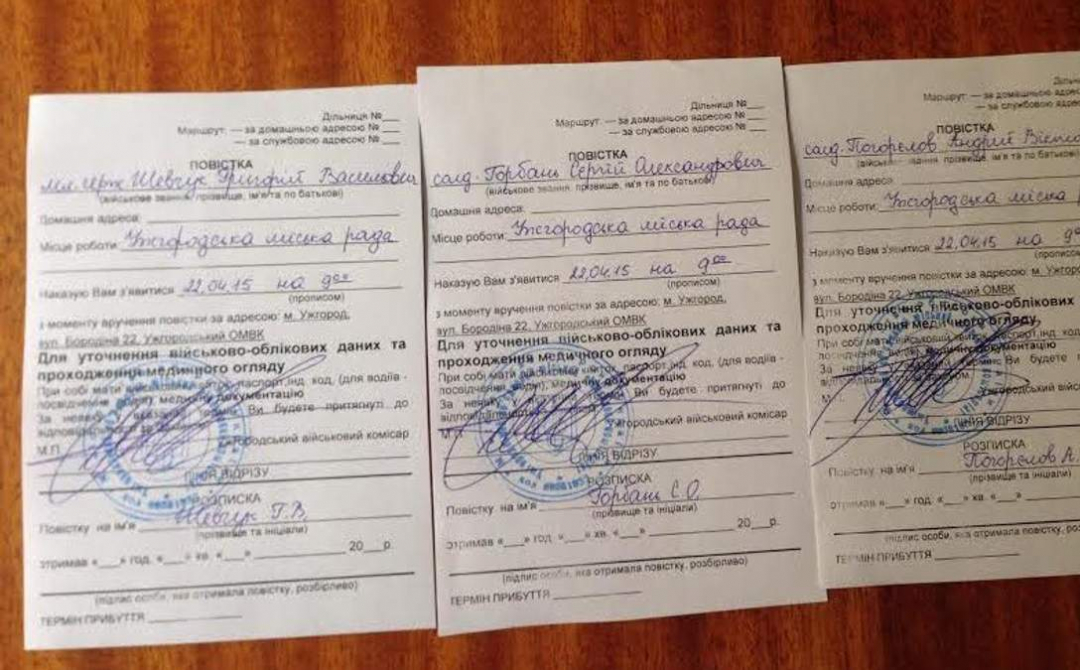 Дільниця №___
Маршрут: — за домашньою адресою №___
— за службовою адресою №___
ПОВІСТКА
мл. серж. Шевчук Григорій Васильович
(військове звання, прізвище, ім'я та по батькові)
Домашня адреса:
Місце роботи: Ужгородська міська рада
Наказую Вам з'явитися 22.04.15 на 9⁰⁰
(прописом)
з моменту вручення повістки за адресою: м. Ужгород,
вул. Бородіна 22, Ужгородський ОМВК
Для уточнення військово-облікових даних та
проходження медичного огляду
При собі мати паспорт, інд. код, (для водіїв -
посвідчення водія), медичну документацію
За неявку Ви будете притягнуті до
відповідальності
М.П. Ужгородський військовий комісар
ЛІНІЯ ВІДРІЗУ
РОЗПИСКА
Повістку на ім'я Шевчук Г.В.
(прізвище та ініціали)
отримав «___» год. «___» хв. «___» ______________ 20___р.
(підпис особи, яка отримала повістку, розбірливо)
ТЕРМІН ПРИБУТТЯ ______________
Дільниця №___
Маршрут: — за домашньою адресою №___
— за службовою адресою №___
ПОВІСТКА
солд. Горбань Сергій Олександрович
(військове звання, прізвище, ім'я та по батькові)
Домашня адреса:
Місце роботи: Ужгородська міська рада
Наказую Вам з'явитися 22.04.15 на 9⁰⁰
(прописом)
з моменту вручення повістки за адресою: м. Ужгород,
вул. Бородіна 22, Ужгородський ОМВК
Для уточнення військово-облікових даних та
проходження медичного огляду
При собі мати військовий квиток, паспорт, інд. код, (для водіїв -
посвідчення водія), медичну документацію
За неявку Ви будете притягнуті до
відповідальності
М.П. Ужгородський військовий комісар
ЛІНІЯ ВІДРІЗУ
РОЗПИСКА
Повістку на ім'я Горбань С.О.
(прізвище та ініціали)
отримав «___» год. «___» хв. «___» ______________ 20___р.
(підпис особи, яка отримала повістку, розбірливо)
ТЕРМІН ПРИБУТТЯ ______________
Маршрут: — за домашньою
— за службовою
ПОВІСТКА
солд. Погорелов Андрій
звання, прізвище, ім'я та по
Домашня адреса
Місце роботи: Ужгородська міська
Наказую Вам з'явитися 22.04.15 на
(прописом)
з моменту вручення повістки за адресою: м.
вул. Бородіна 22, Ужгородський ОМВК
Для уточнення військово-облікових
проходження медичного огляду
При собі мати паспорт, інд. код
медичну документацію
За неявку Ви будете
М.П. Ужгородський
ЛІНІЯ ВІДРІЗУ
РОЗПИСКА
Повістку на ім'я Погорелов А.
(прізвище та ініціали)
отримав «___» год. «___» хв. «___»
(підпис особи, яка отримала повістку
ТЕРМІН ПРИБУТТЯ ______________